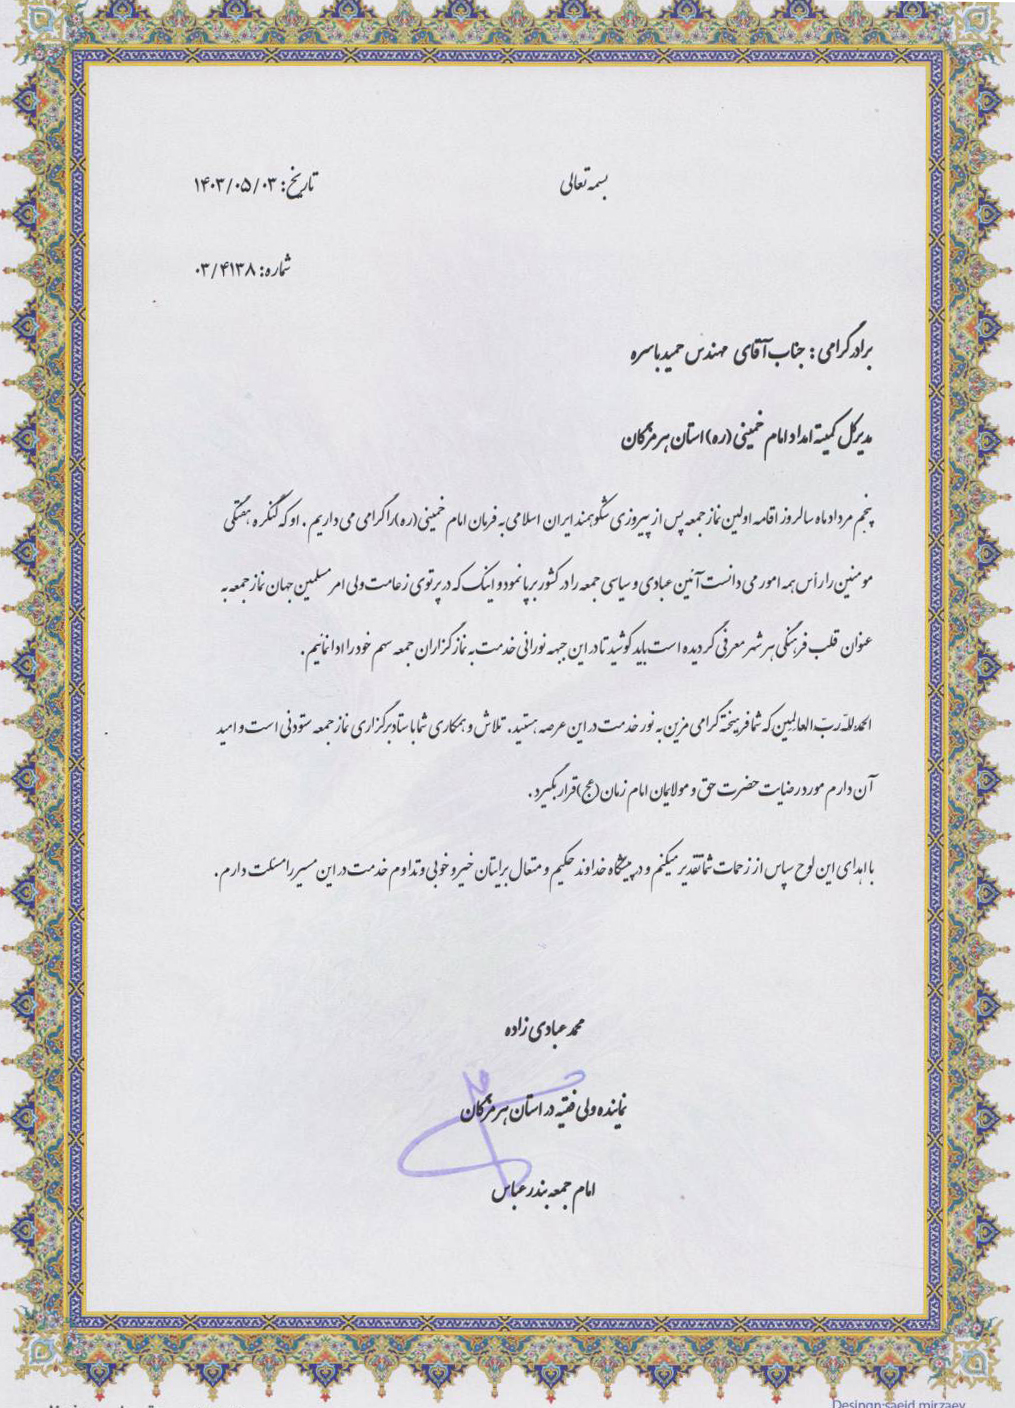 بسمه تعالی
تاریخ: ۱۴۰۳/۰۵/۰۳
شماره: ۰۳/۴۱۳۸
برادر گرامی: جناب آقای مهندس حمید باسره
مدیرکل کمیته امداد امام خمینی (ره) استان هرمزگان
پنجم مرداد ماه سالروز اقامه اولین نماز جمعه پس از پیروزی شکوهمند ایران اسلامی به فرمان امام خمینی (ره) را گرامی می داریم. او که کنگره هفتگی
مومنین را رأس همه امور می دانست آئین عبادی و سیاسی جمعه را در کشور برپا نمود و اینک که در پرتوی زعامت ولی امر مسلمین جهان نماز جمعه به
عنوان قلب فرهنگی هر شهر معرفی گردیده است باید کوشید تا در این جبهه نورانی خدمت به نمازگزاران جمعه سهم خود را ادا نمائیم.
الحمدلله ربّ العالمین که شما فریخته گرامی مزین به نور خدمت در این عرصه هستید. تلاش و همکاری شما با ستاد برگزاری نماز جمعه ستودنی است و امید
آن دارم مورد رضایت حضرت حق و مولایمان امام زمان (عج) قرار بگیرد.
با اهدای این لوح سپاس از زحمات شما تقدیر میکنم و در پیشگاه خداوند حکیم و متعال برایتان خیر و خوبی و تداوم خدمت در این مسیر را مسئلت دارم.
محمد عبادی زاده
نماینده ولی فقیه در استان هرمزگان
امام جمعه بندرعباس
Desingn:saeid mirzaey